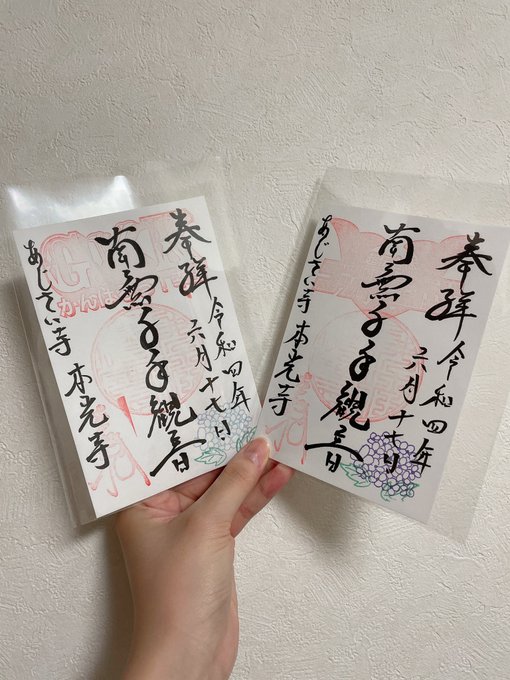 奉拝 令和四年
六月十七日
南無千手観音
あじさい寺 本光寺
奉拝 令和四年
六月十七日
南無千手観音
あじさい寺 本光寺